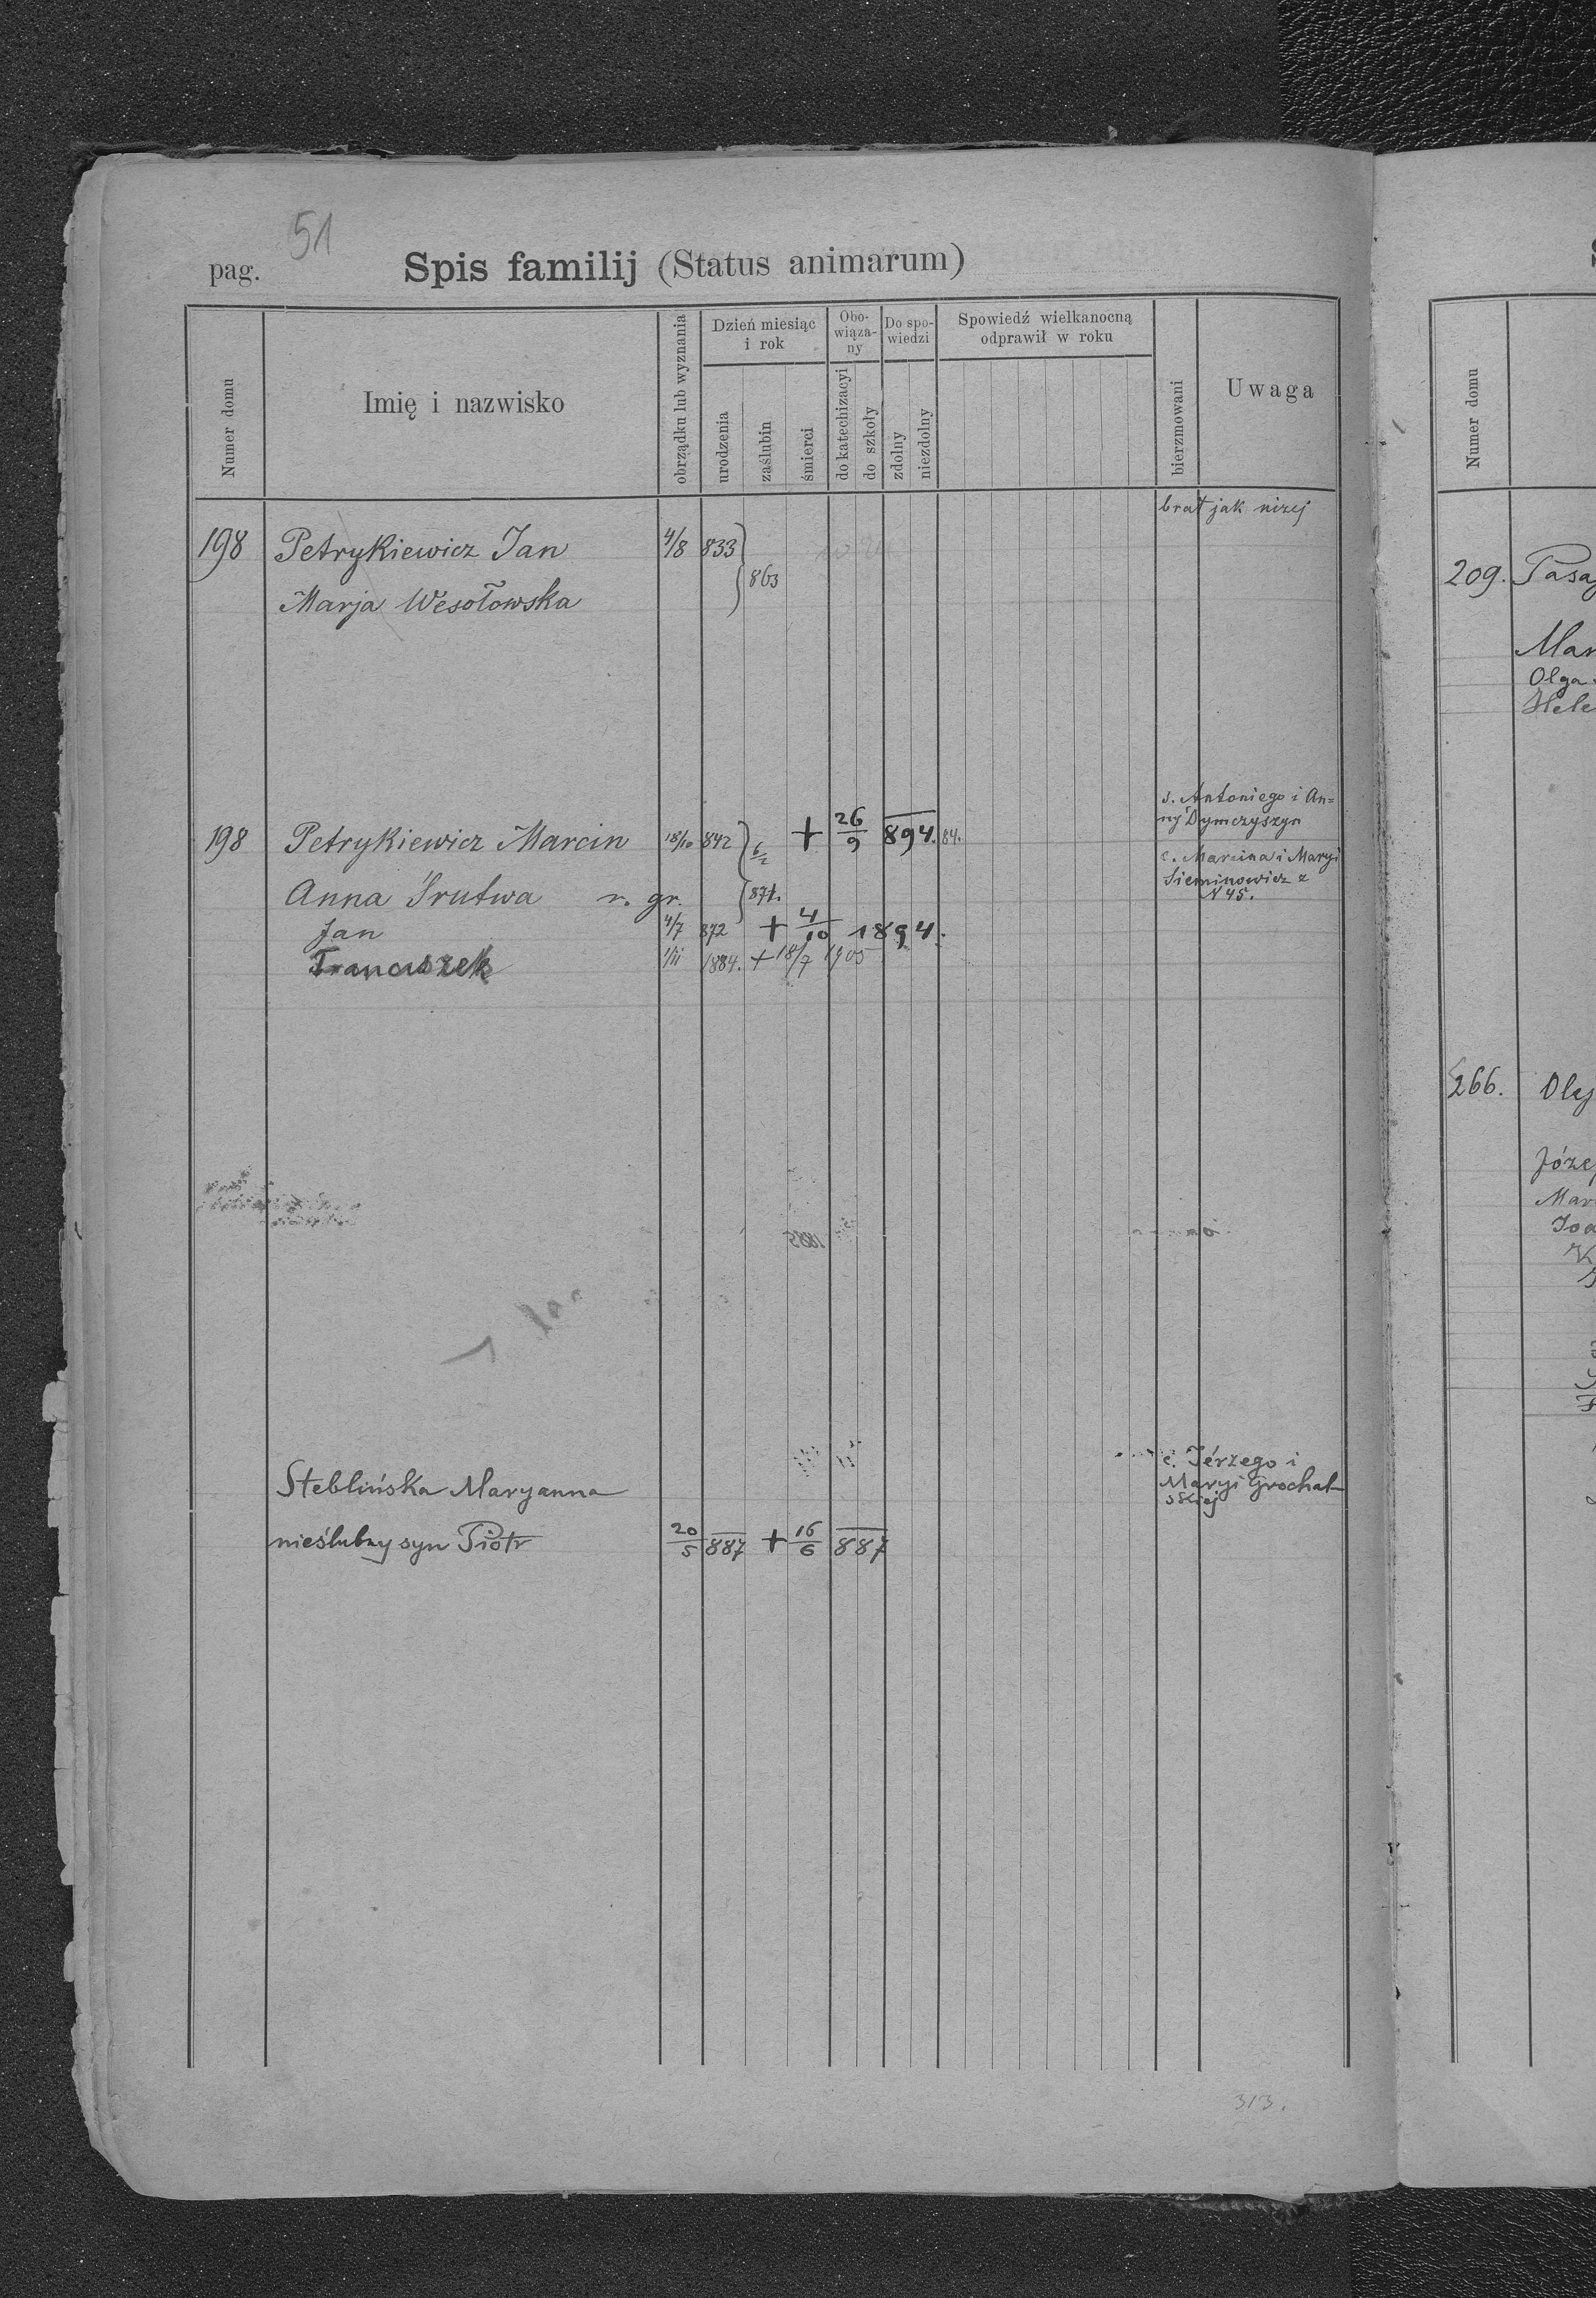 51
pag. Spis familij (Status animarum)
Numer domu
Imię i nazwisko
obrządku lub wyznania
Dzień miesiąc i rok
urodzenia
zaślubin
śmierci
Obowiązany
do katechizacyi
do szkoły
Do spowiedzi
zdolny
niezdolny
Spowiedź wielkanocną odprawił w roku
bierzmowani
Uwaga
brat jak niżej
198 Petrykiewicz Jan 4/8 833
863
Marja Wesołowska
s. Antoniego i An=
ny Dymczyszyn
198 Petrykiewicz Marcin 18/10 842 6/2 + 26/9 894. 84.
c. Marcina i Maryi
Sieminowicz z
N 45.
Anna Srutwa r. gr. 871.
Jan 4/7 872 + 4/10 1894.
Franciszek 1/11 1884. + 18/7 1905
1885
c. Jérzego i
Maryi Grochal-
skiej
Steblińska Maryanna
nieślubny syn Piotr 20/5 887 + 16/6 887
313.
Numer domu
209. Pasa
Mar
Olga
Hele
266. Oly
Józef
Mar
Joa
K